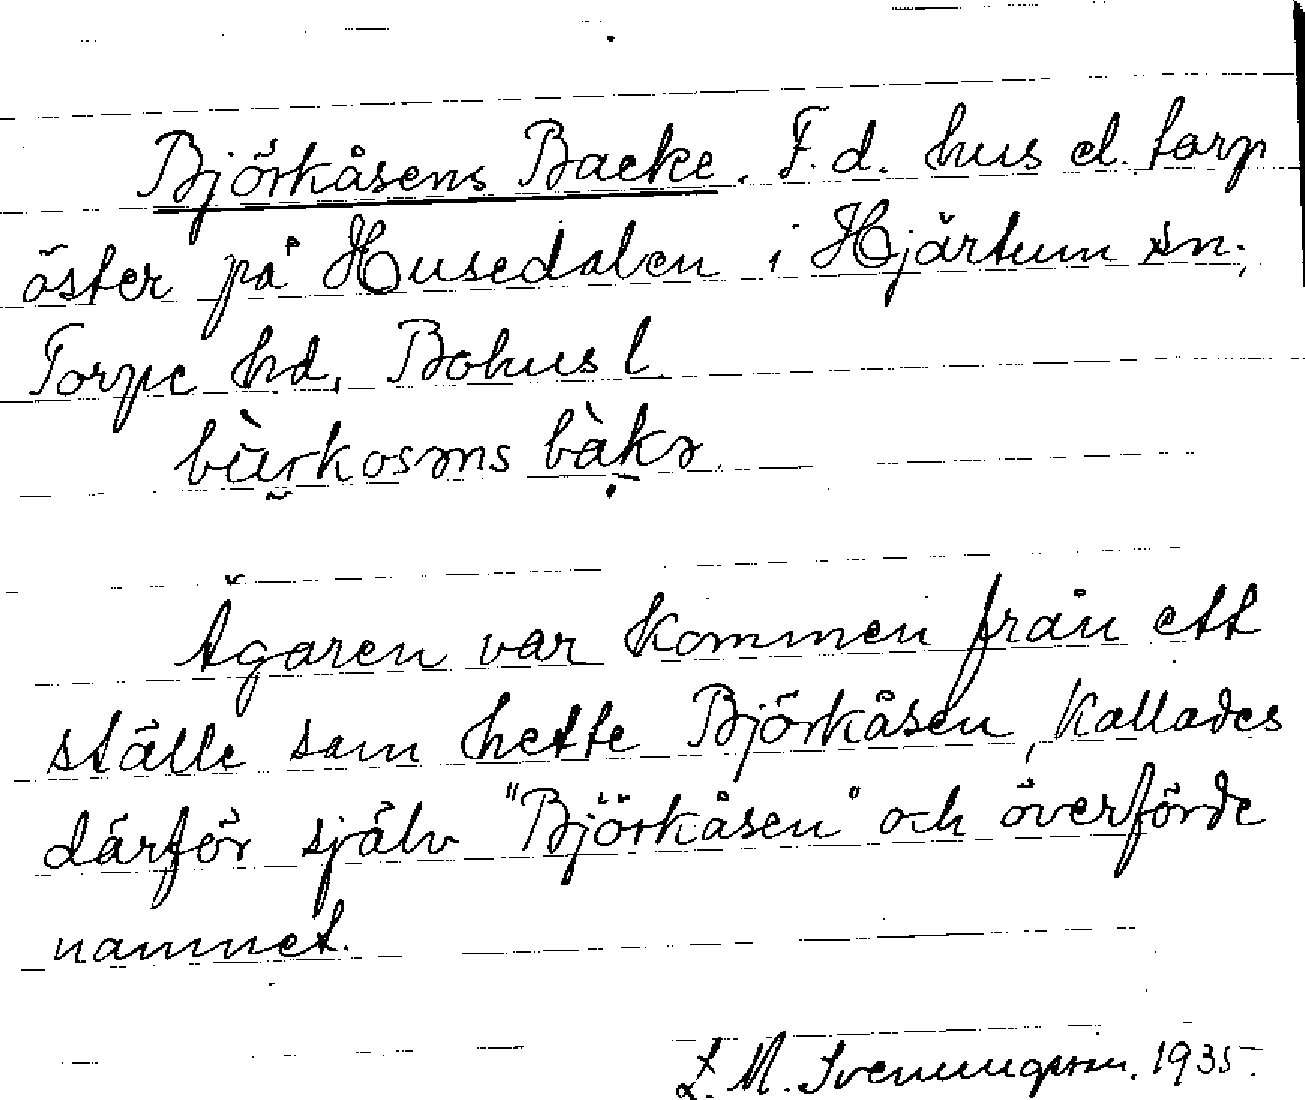 Björkåsens Backe. F.d. hus el. torp
öster på Husedalen i Hjärtum sn.,
Torpe hd, Bohusl.
Ägaren var kommen från ett
ställe som hette Björkåsen, kallades
därför själv "Björkåsen" och överförde
namnet.
M. Svenungsson. 1935.